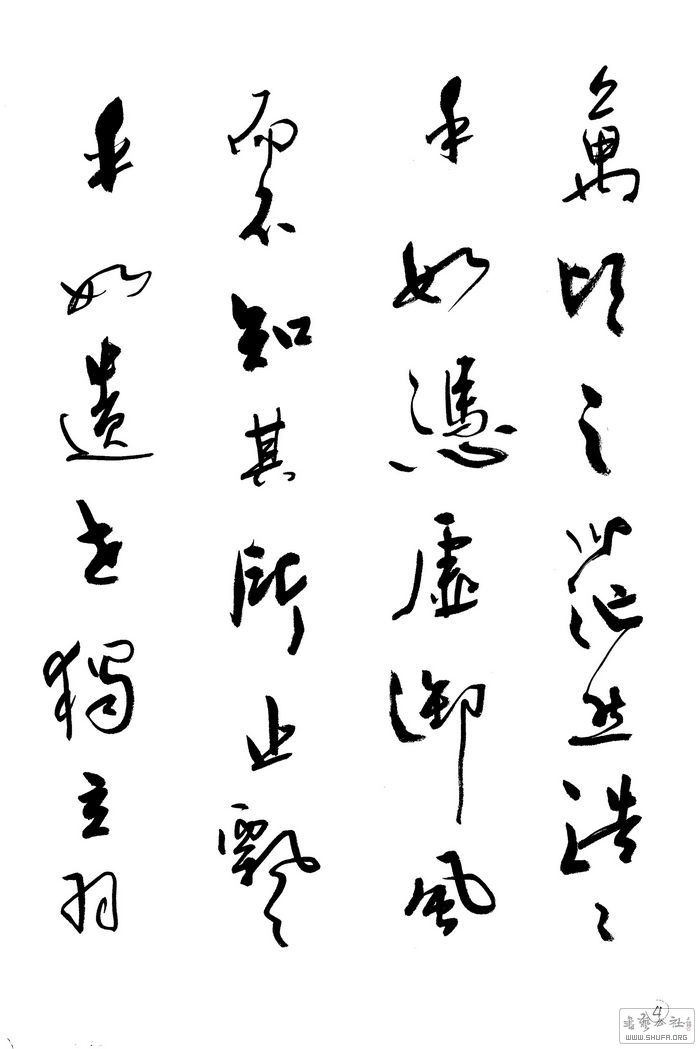 萬頃之茫然浩〻
乎如憑虛御風
而不知其所止飄〻
乎如遺世獨立羽
4
WWW.SHUFA.ORG